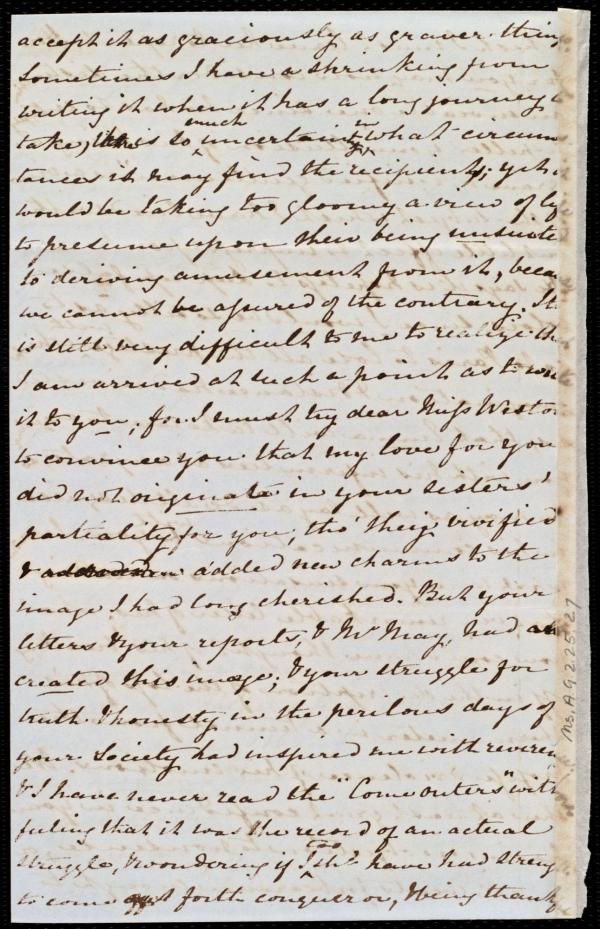 accept it as graciously as graver thing
Sometimes I have a shrinking from
writing it when it has a long journey
take, it is so much uncertain in what circum
tances it may find the recipient; yet
would be taking too gloomy a view of
to presume upon their being unsuite
to deriving amusement from it, beca
we cannot be assured of the contrary. It
is still very difficult to me to realize
I am arrived at such a point as to
it to you, for I must try dear Miss Westo
to convince you that my love for you
did not originate in your sisters'
partiality for you, tho' they vivified
& added new charms to the
image I had long cherished. But your
letters & your reports, & Mr May, had
created this image; & your struggle for
truth & honesty in the perilous days of
your Society had inspired me with reveren
& I have never read the "Come outers" with
feeling that it was the record of an actual
struggle, & wondering if I too shd have had streng
to come forth conqueror, & being thank
Ms. A.9.2.25.27